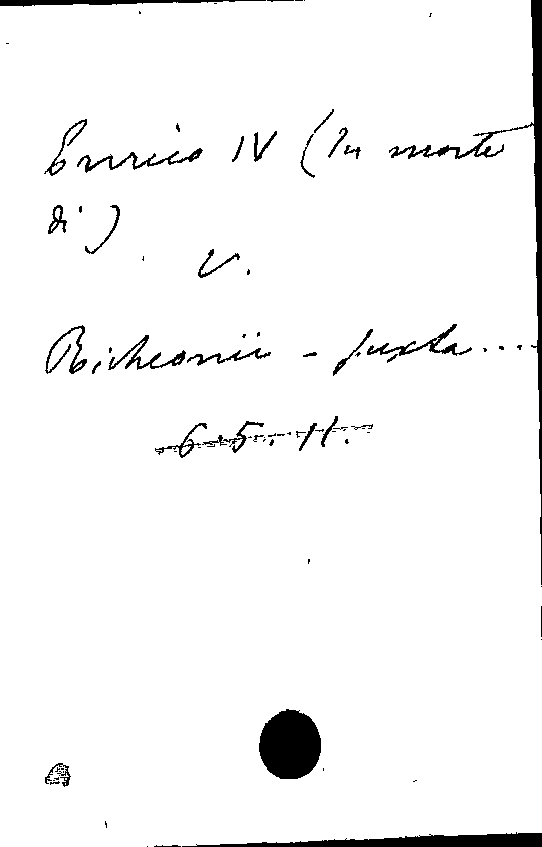 Enrico IV (In morte
di)
V.
Richeomii - juxta....
6.5.11.